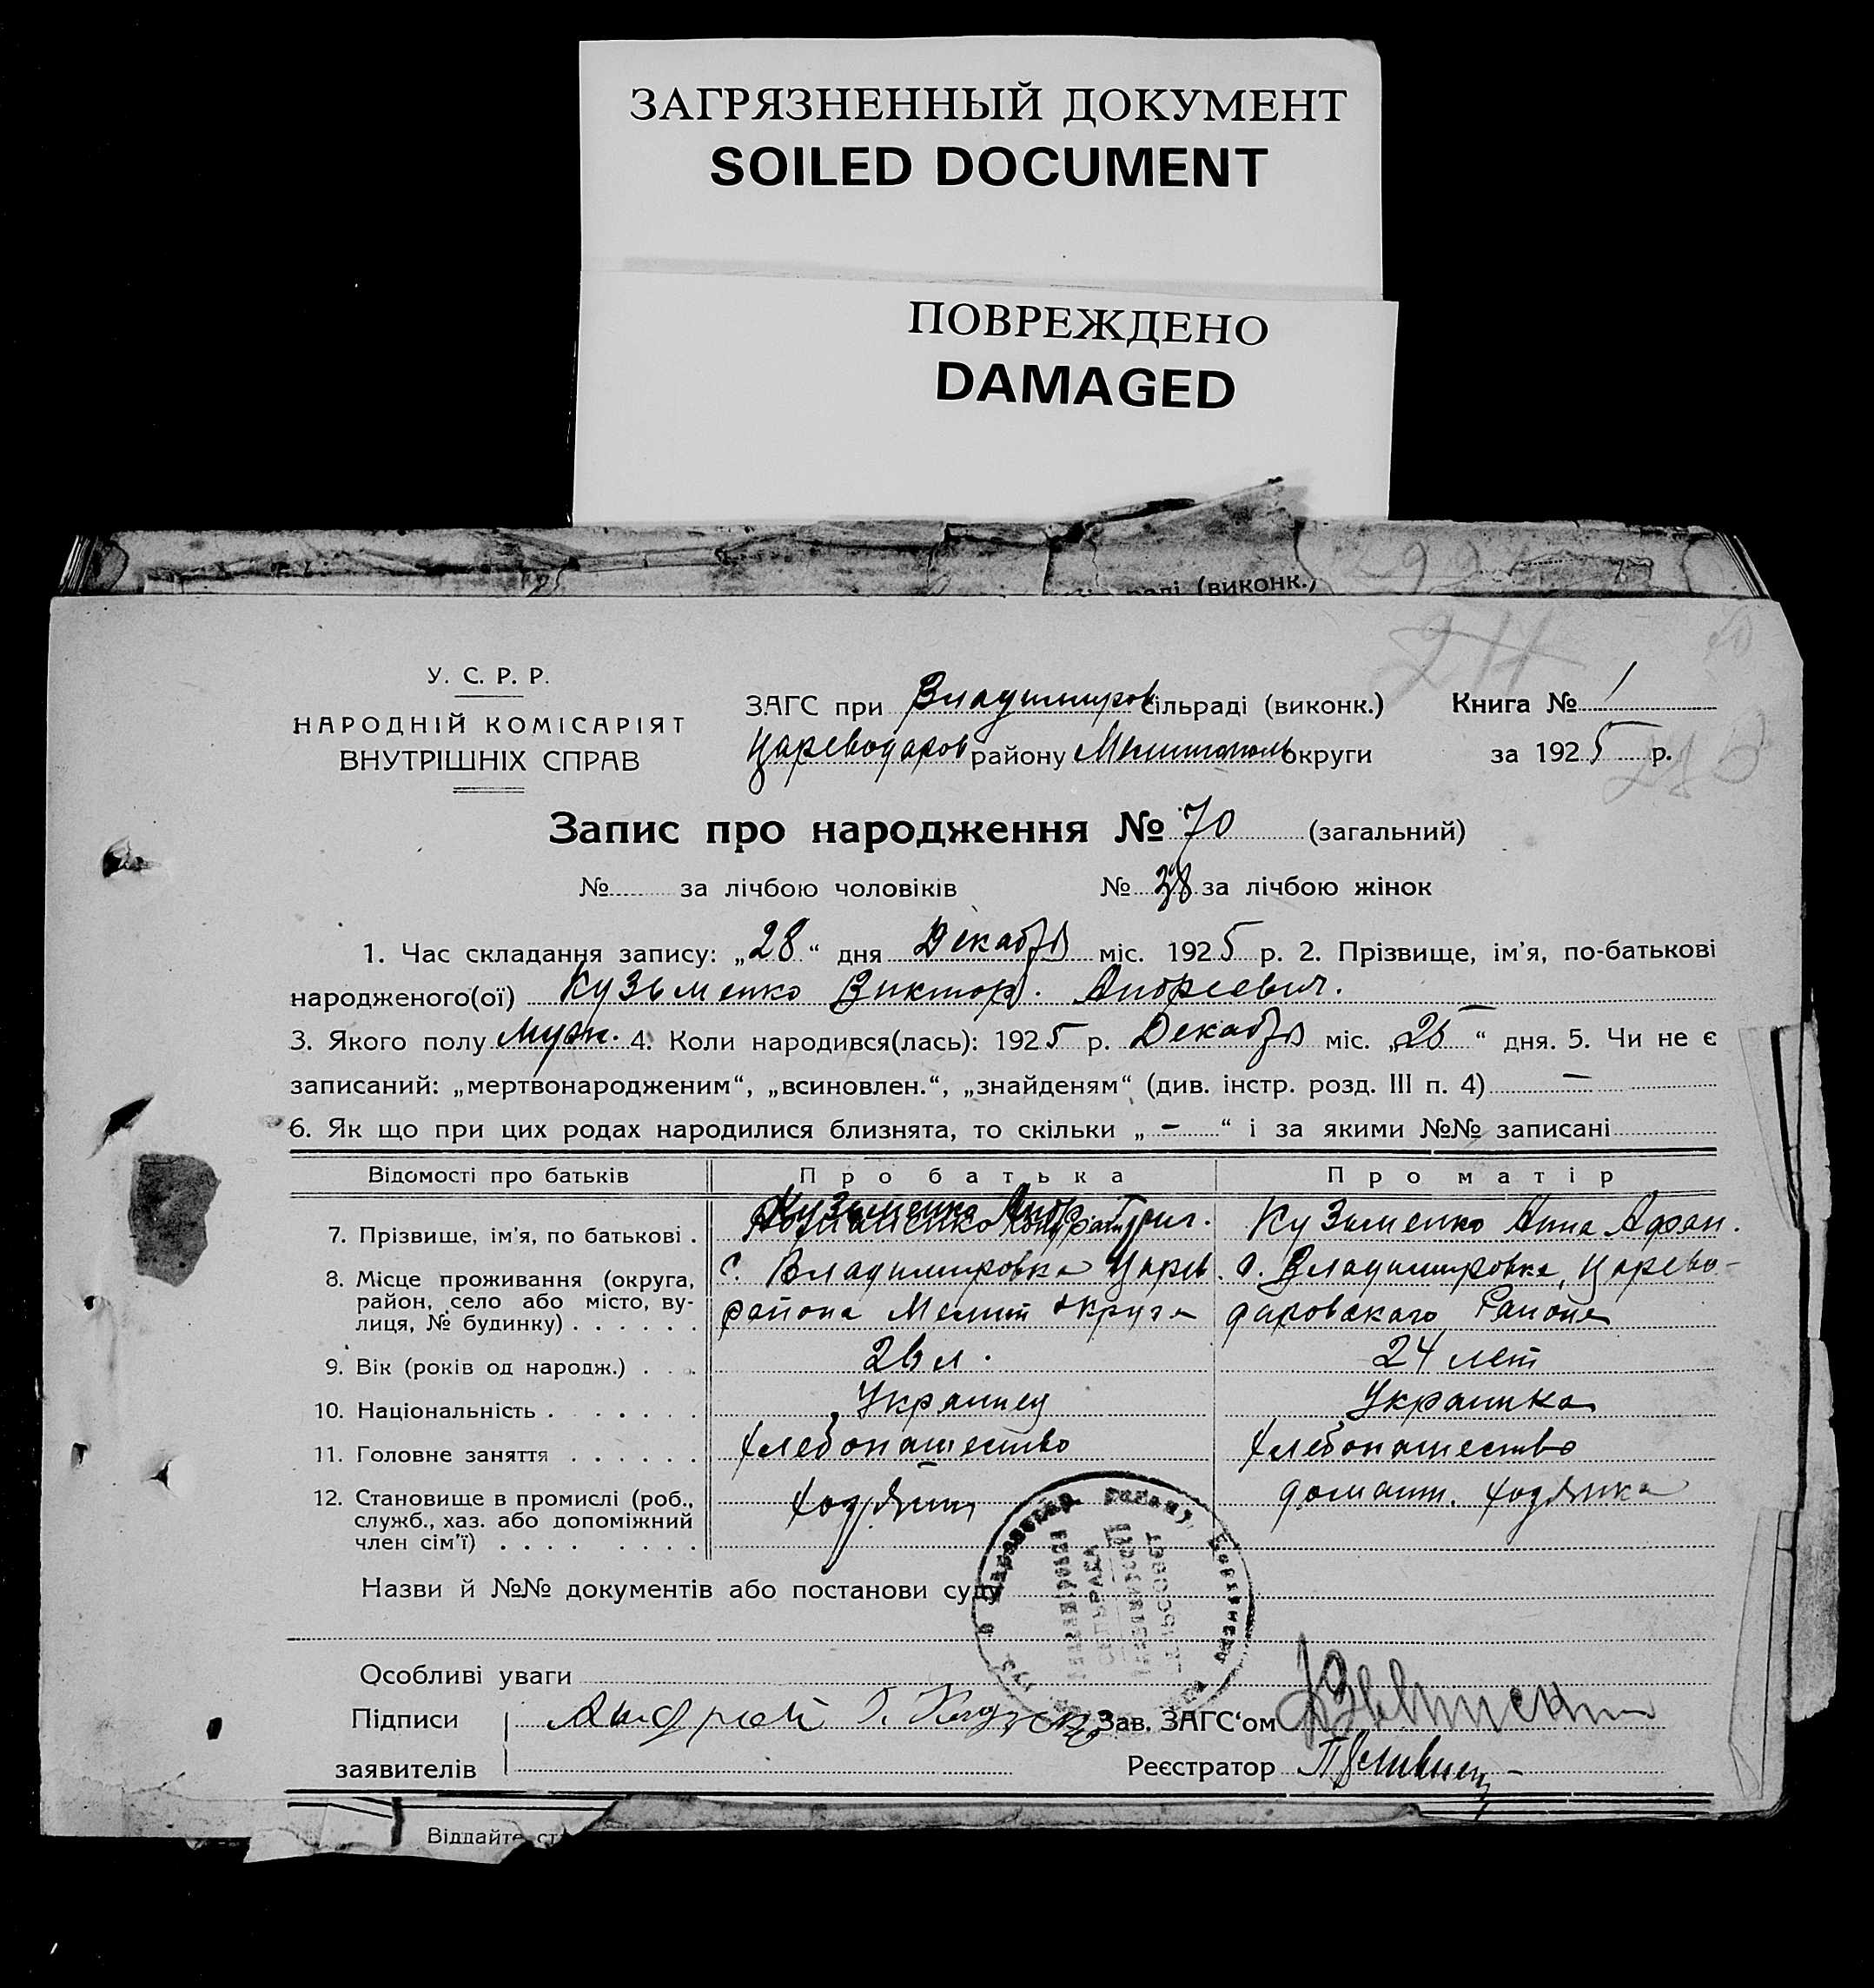 ЗАГРЯЗНЕННЫЙ ДОКУМЕНТ
SOILED DOCUMENT
ПОВРЕЖДЕНО
DAMAGED
(виконк.)
У. С. Р. Р.
НАРОДНІЙ КОМІСАРІЯТ
ВНУТРІШНІХ СПРАВ
ЗАГС при Владимиров сільраді (виконк.) Книга № 1
Цареводаров району Мелитополь округи за 1925 р.
Запис про народження № 70 (загальний)
№ за лічбою чоловіків № 38 за лічбою жінок
1. Час складання запису: „28“ дня Декабря міс. 1925 р. 2. Прізвище, ім'я, по-батькові
народженого(ої) Кузьменко Виктор. Андреевич.
3. Якого полу Муж. 4. Коли народився(лась): 1925 р. Декабря міс. „25“ дня. 5. Чи не є
записаний: „мертвонародженим“, „всиновлен.“, „знайденям“ (див. інстр. розд. III п. 4) —
6. Як що при цих родах народилися близнята, то скільки „ – “ і за якими №№ записані
Відомості про батьків Про батька Про матір
7. Прізвище, ім'я, по батькові . Кузьменко Андр. Григ. Кузьменко Анна Афан.
8. Місце проживання (округа, с. Владимировка Царев. с. Владимировка, Царево-
район, село або місто, ву-
лиця, № будинку) . . . . . . района Мелит округа даровского Района
9. Вік (років од народж.) . . . 26 л. 24 лет
10. Національність . . . . . . Украинец Украинка
11. Головне заняття . . . . . . хлебопашество хлебопашество
12. Становище в промислі (роб., ходяин домашн. ходяйка
служб., хаз. або допоміжний
член сім'ї) . . . . . . . .
Назви й №№ документів або постанови суду
Особливі уваги
Підписи Андрей Г. Зав. ЗАГС‘ом
заявителів Реєстратор
Віддайте ст